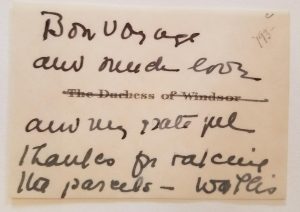 Bon Voyage
and much love
The Duchess of Windsor
and my grateful
thanks for taking
the parcels – Wallis